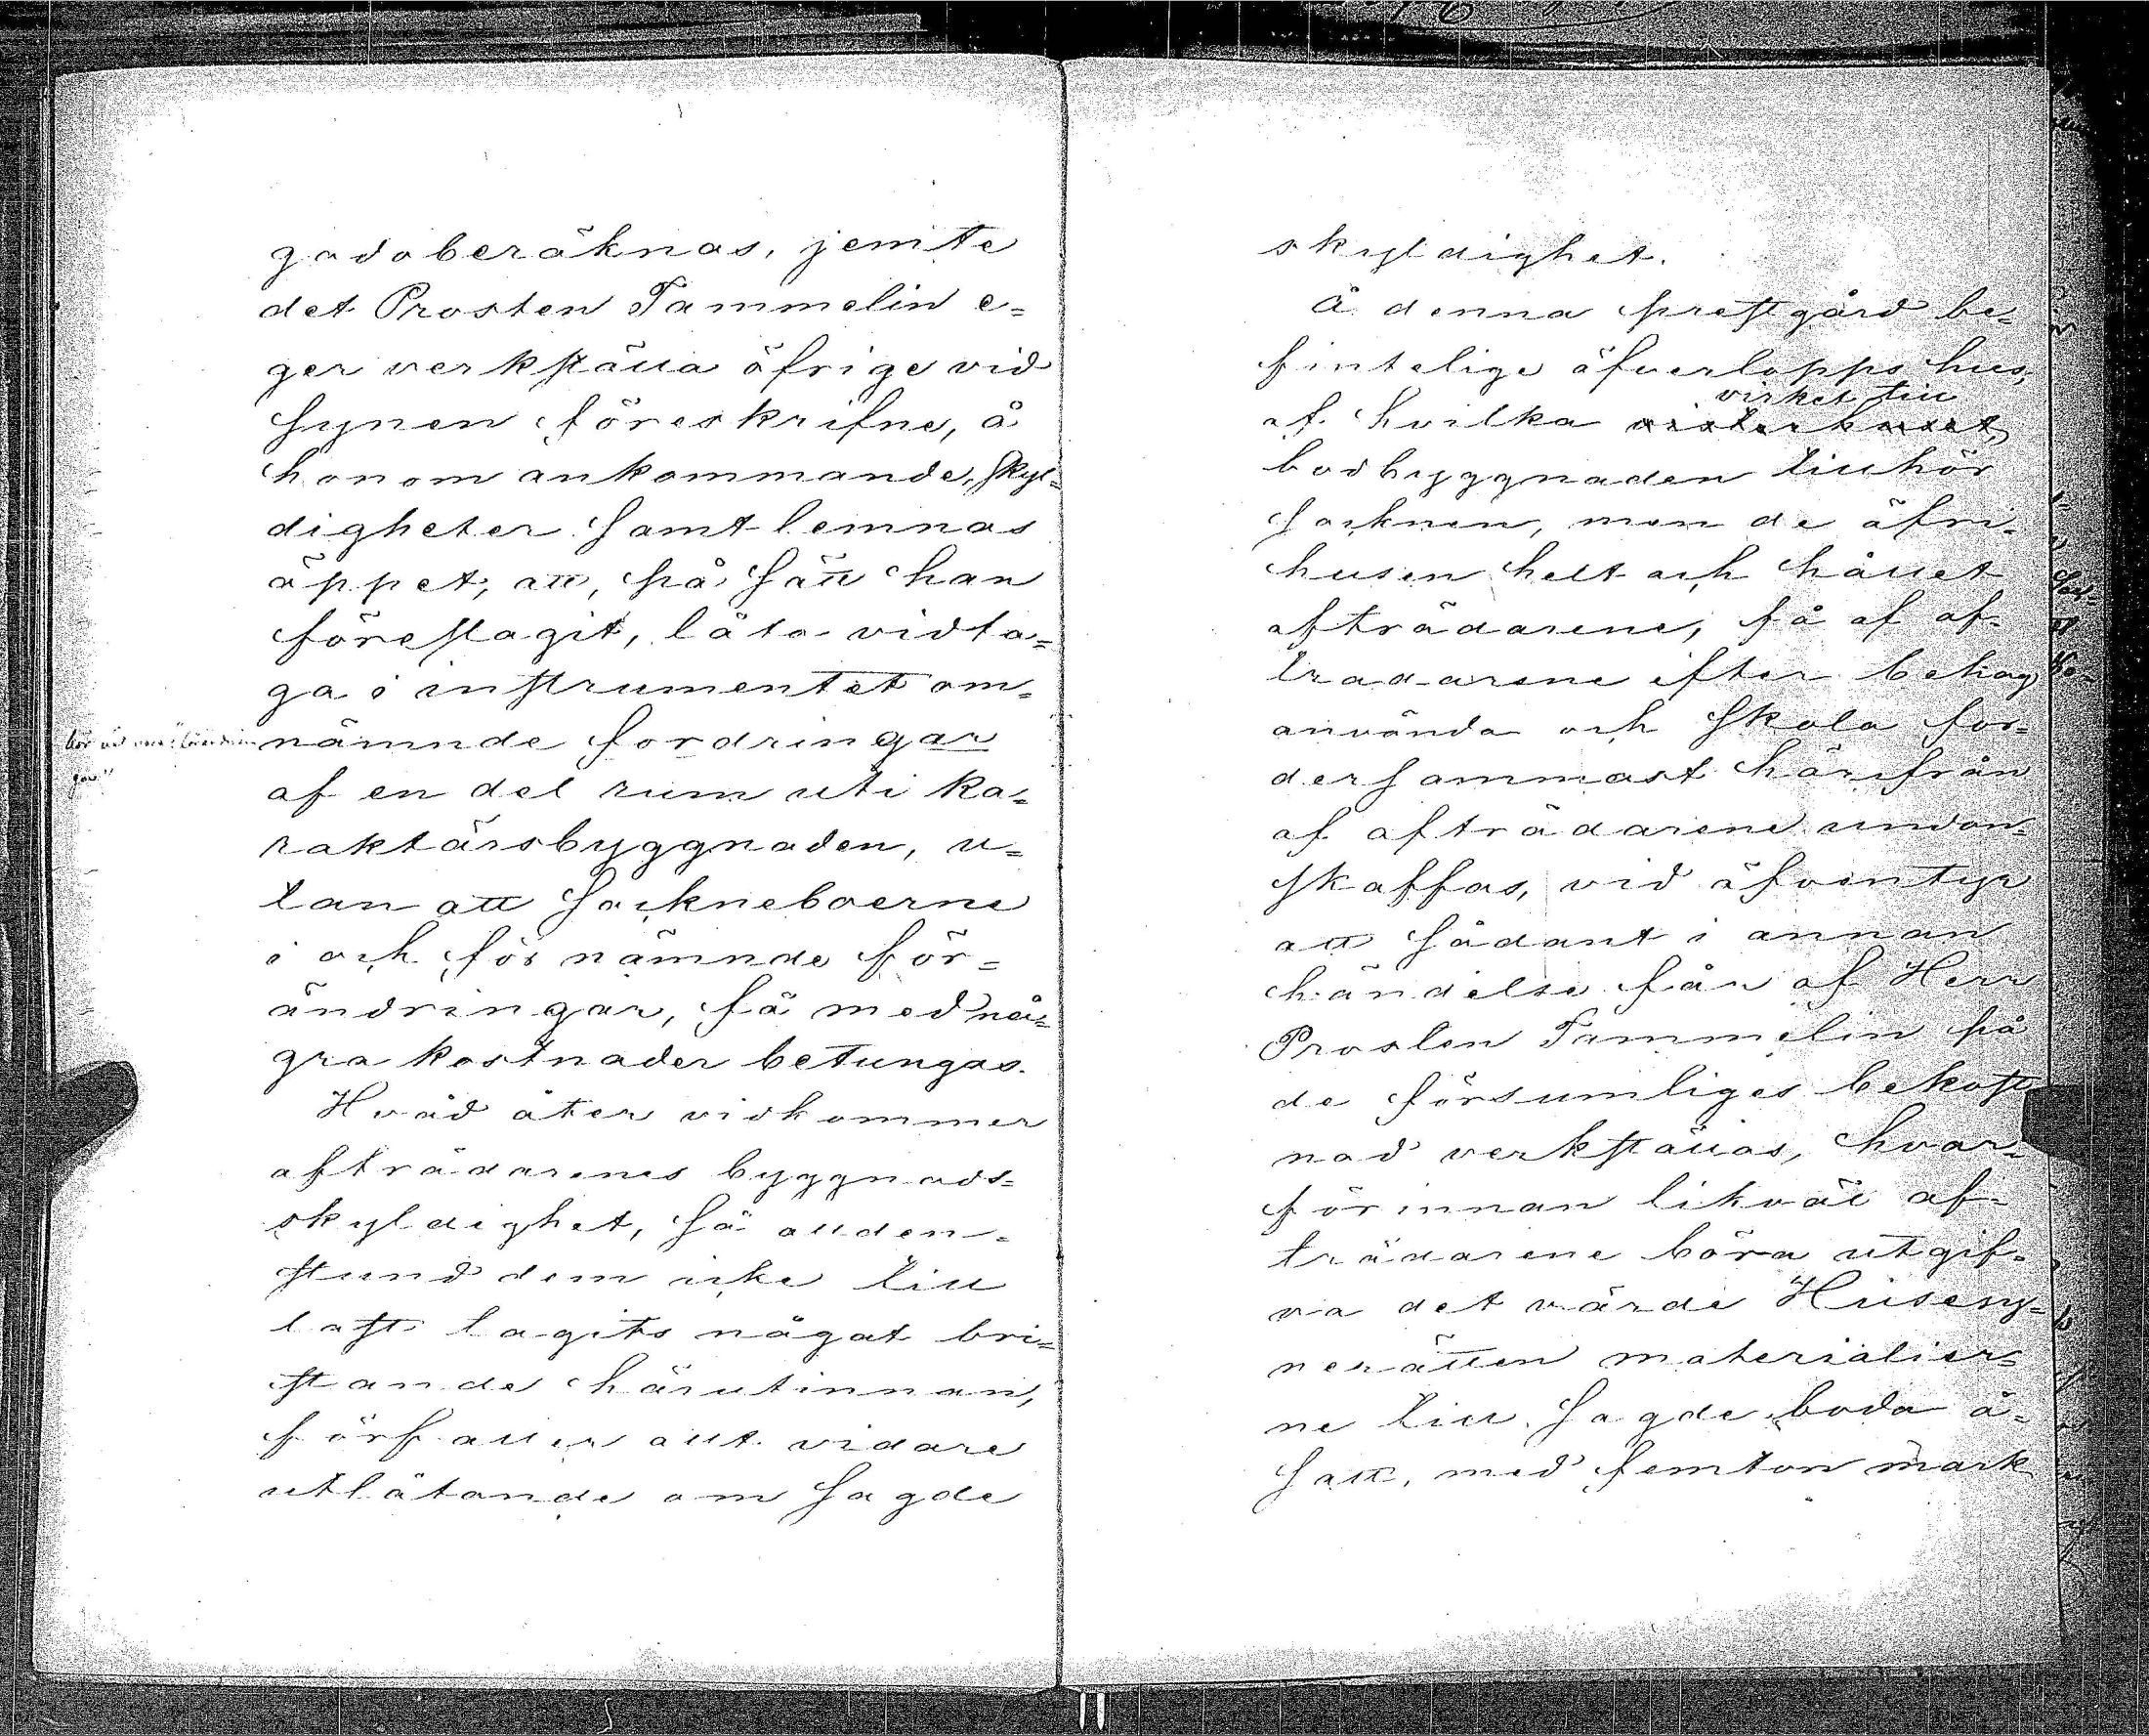 godoberäknas, jemte
det Prosten Tammelin e=
ger verkställa öfrige vid
synen föreskrifne, å
honom ankommande, skyl=
digheter samt lemnas
öppet, att, på sätt han
föreslagit, låta vidta=
ga i instrumentet om=
nämnde fordringar
af en del rum uti ka=
raktärsbyggnaden, u=
tan att Sockneboerne
i och för nämnde för=
ändringar, få med nå=
gra kostnader betungas.
Hvad åter vidkommer
afträdarenes byggnads=
skyldighet, så allden=
stund dem icke till
last lagits något bri=
stande härutinnan,
förfaller allt vidare
utlåtande om sagde
skyldighet.
Å denna prestgård be=
fintelige öfverlopps hus,
virket till
af hvilka
bodbyggnaden tillhör
Socknen, men de öfri=
husen helt och hållet
afträdarene, få af af=
trädarene efter behag
använda och skola for=
dersammast härifrån
af afträdarene undan=
skaffas, vid äfventyr
att sådant i annan
händelse får af Herr
Prosten Tammelin på
de försumliges bekost
nad verkställas, hvar=
förinnan likväl af=
trädarene böra utgif=
va det värde Husesy=
nerätten materialier=
ne till sagde boda å=
satt, med femton mark